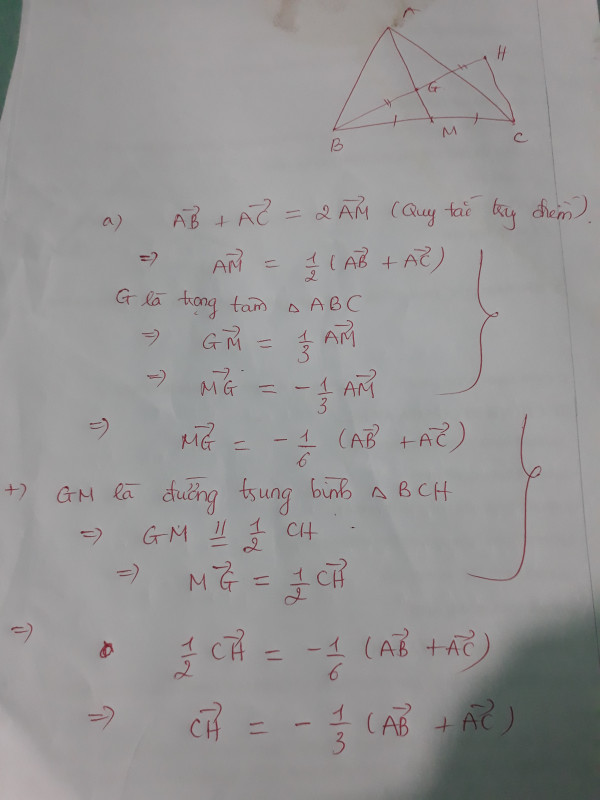 A
H
G
B
M
C
a) AB→ + AC→ = 2 AM→ (Quy tắc try điểm).
=> AM→ = 1/2 (AB→ + AC→)
G là trọng tâm △ ABC
=> GM→ = 1/3 AM→
=> MG→ = - 1/3 AM→
=> MG→ = - 1/6 (AB→ + AC→)
+) GM là đường trung bình △ BCH
=> GM // = 1/2 CH
=> MG→ = 1/2 CH→
=> 1/2 CH→ = - 1/6 (AB→ + AC→)
=> CH→ = - 1/3 (AB→ + AC→)